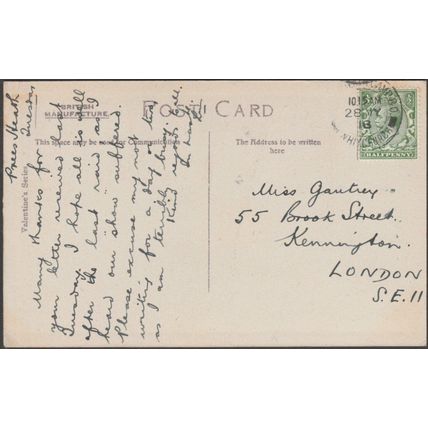 BRITISH
MANUFACTURE.
POST CARD
This space may be used for Communication
The Address to be written
here
Valentine's Series
Prees Heath
Tuesday
Many thanks for
your letter received last
Tuesday. I hope all is well
after the last raid as I
heard our "show" suffered.
Please excuse my not
writing for a day or two
as I am terribly busy.
Kind regards
10.15 AM
28 MY
18
WHITCHURCH
HALFPENNY
Miss Gautrey
55 Brook Street.
Kennington.
LONDON
S.E.11